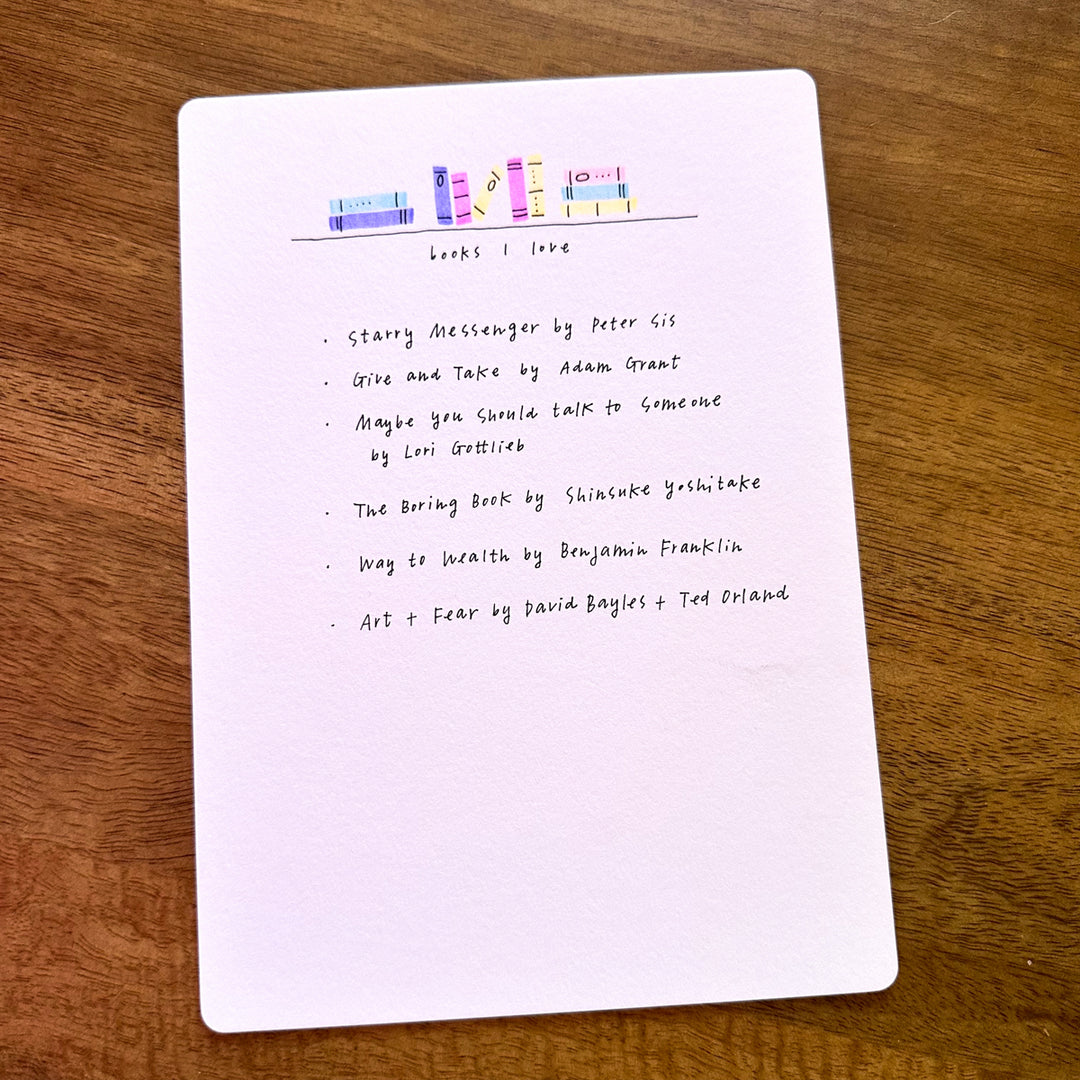 books I love
• Starry Messenger by Peter Sis
• Give and Take by Adam Grant
• Maybe you should talk to someone
by Lori Gottlieb
• The Boring Book by Shinsuke Yoshitake
• Way to Wealth by Benjamin Franklin
• Art + Fear by David Bayles + Ted Orland